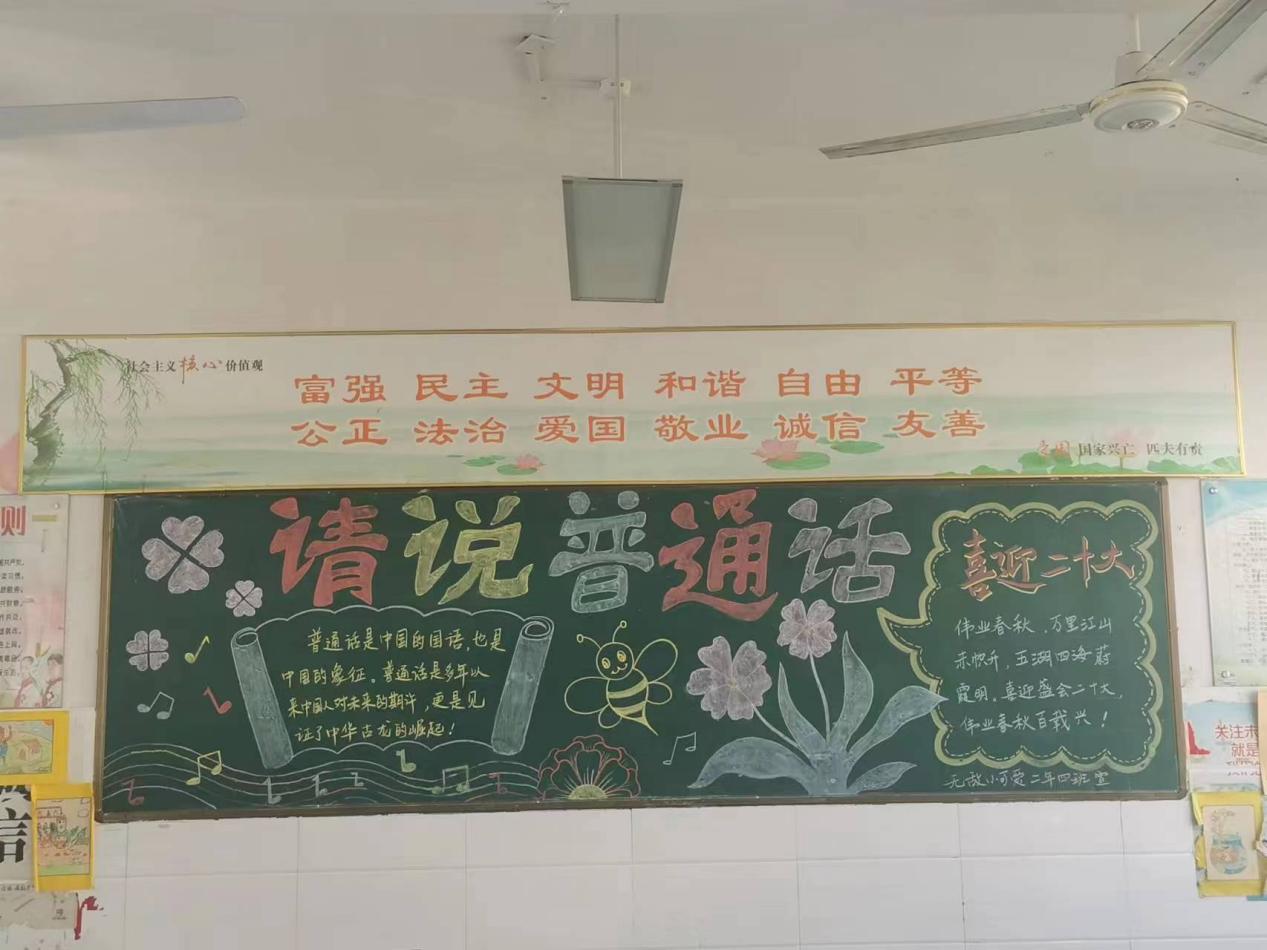 社会主义核心价值观
富强 民主 文明 和谐 自由 平等
公正 法治 爱国 敬业 诚信 友善
国家兴亡 匹夫有责
则
请说普通话
普通话是中国的国语,也是
中国的象征。普通话是多年以
来中国人对未来的期许,更是见
证了中华古龙的崛起!
喜迎二十大
伟业春秋,万里江山
赤帜升,五湖四海蔚
霞明。喜迎盛会二十大,
伟业春秋百载兴!
无敌小可爱二年四班宣
关注未
就是
信